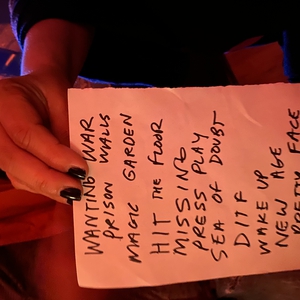 WANTING WAR
PRISON WALLS
MAGIC GARDEN
HIT THE FLOOR
MISSING
PRESS PLAY
SEA OF DOUBT
DITF
WAKE UP
NEW AGE
PRETTY FACE